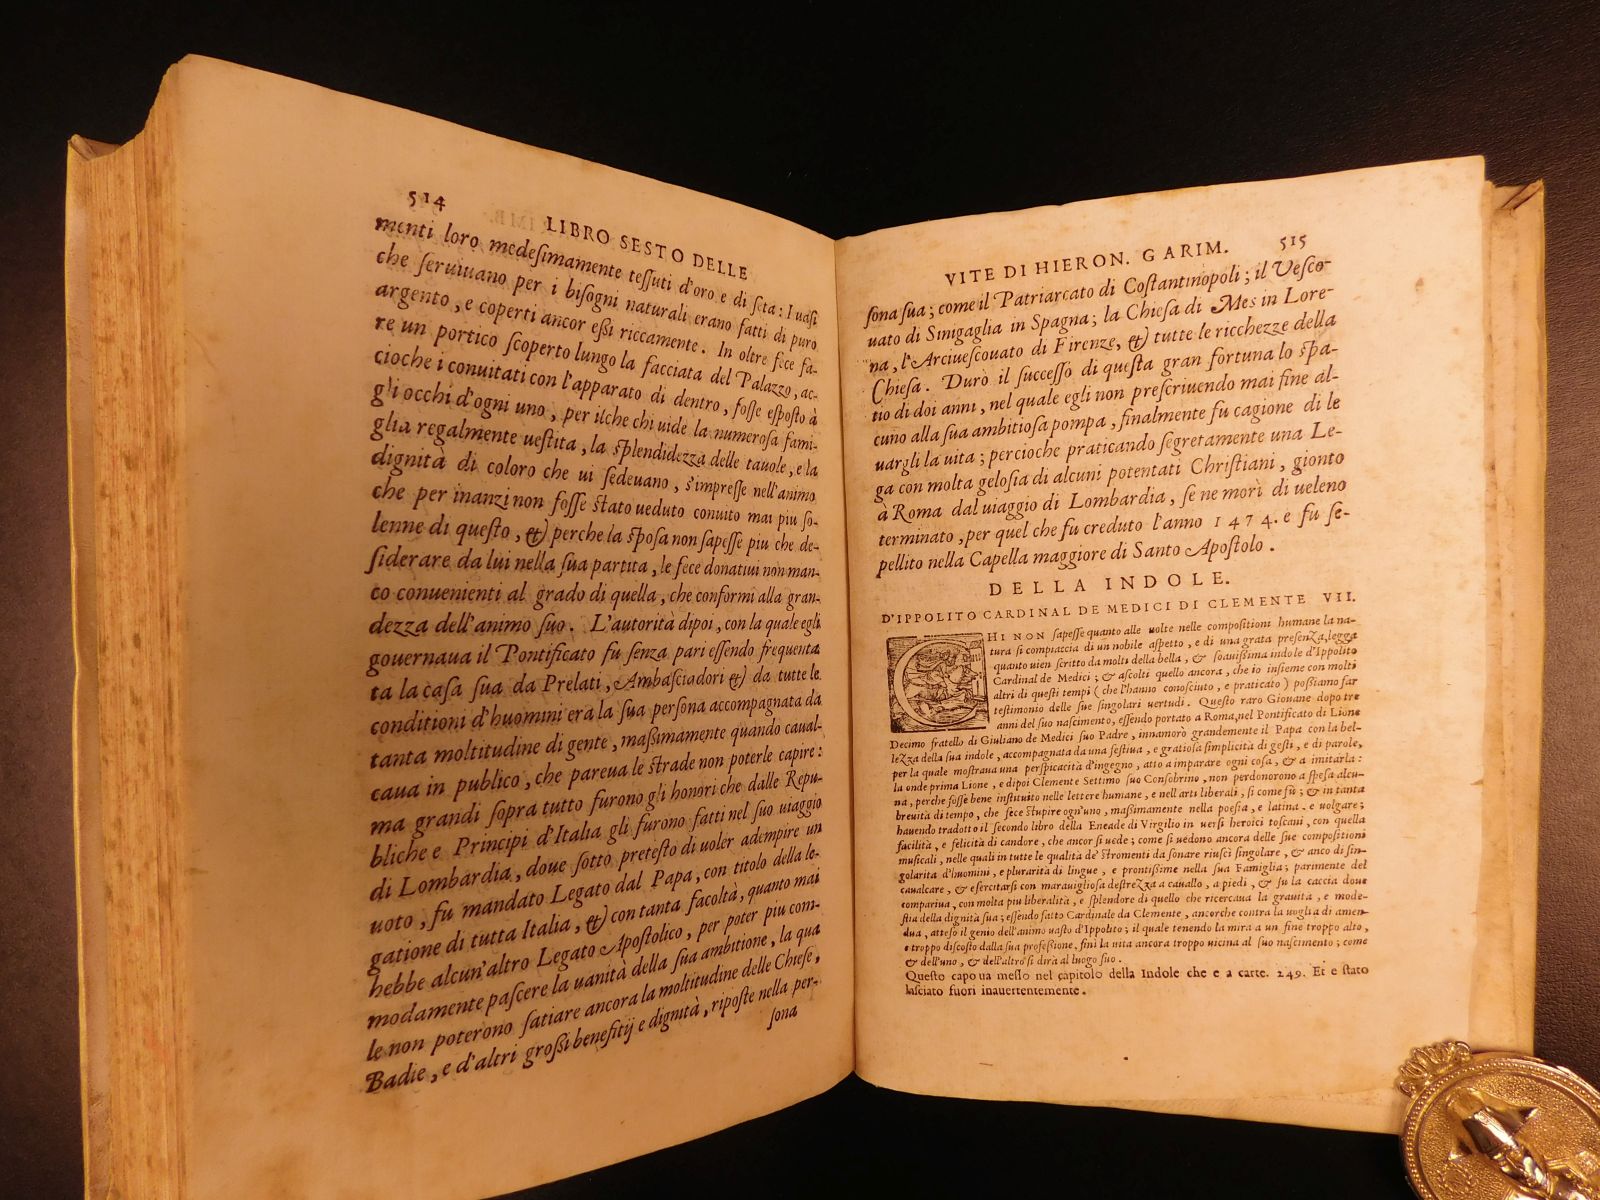 514
LIBRO SESTO DELLE
menti loro medesimamente tessuti d'oro e di seta: I uasi
che seruiuano per i bisogni naturali erano fatti di puro
argento, e coperti ancor essi riccamente. In oltre fece fa-
re un portico scoperto lungo la facciata del Palazzo, ac-
cioche i conuitati con l'apparato di dentro, fosse esposto à
gli occhi d'ogni uno, per ilche chi uide la numerosa fami-
glia regalmente uestita, la splendidezza delle tauole, e la
dignità di coloro che ui sedeuano, s'impresse nell'animo
che per inanzi non fosse stato ueduto conuito mai piu so-
lenne di questo, & perche la sposa non sapesse piu che de-
siderare da lui nella sua partita, le fece donatiui non man-
co conuenienti al grado di quella, che conformi alla gran-
dezza dell'animo suo. L'autorità dipoi, con la quale egli
gouernaua il Pontificato fu senza pari essendo frequenta
ta la casa sua da Prelati, Ambasciadori & da tutte le
conditioni d'huomini era la sua persona accompagnata da
tanta moltitudine di gente, massimamente quando caual-
caua in publico, che pareua le strade non poterle capire:
ma grandi sopra tutto furono gli honori che dalle Repu-
bliche e Principi d'Italia gli furono fatti nel suo uiaggio
di Lombardia, doue sotto pretesto di uoler adempire un
uoto, fu mandato Legato dal Papa, con titolo della le-
gatione di tutta Italia, & con tanta facoltà, quanto mai
hebbe alcun'altro Legato Apostolico, per poter piu com-
modamente pascere la uanità della sua ambitione, la qua
le non poterono satiare ancora la moltitudine delle Chiese,
Badie, e d'altri grossi benefitij e dignità, riposte nella per-
sona
VITE DI HIERON. GARIM.
515
sona sua; come il Patriarcato di Costantinopoli; il Vesco-
uato di Sinigaglia in Spagna; la Chiesa di Mes in Lore-
na, l'Arciuescouato di Firenze, & tutte le ricchezze della
Chiesa. Durò il successo di questa gran fortuna lo spa-
tio di doi anni, nel quale egli non prescriuendo mai fine al-
cuno alla sua ambitiosa pompa, finalmente fu cagione di le
uargli la uita; percioche praticando segretamente una Le-
ga con molta gelosia di alcuni potentati Christiani, gionto
à Roma dal uiaggio di Lombardia, se ne morì di ueleno
terminato, per quel che fu creduto l'anno 1474. e fu se-
pellito nella Capella maggiore di Santo Apostolo.
DELLA INDOLE.
D'IPPOLITO CARDINAL DE MEDICI DI CLEMENTE VII.
CHI NON sapesse quanto alle uolte nelle compositioni humane la na-
tura si compiaccia di un nobile aspetto, e di una grata presenza, legga
quanto uien scritto da molti della bella, & soauissima indole d'Ippolito
Cardinal de Medici; & ascolti quello ancora, che io insieme con molti
altri di questi tempi (che l'hanno conosciuto, e praticato) possiamo far
testimonio delle sue singolari uertudi. Questo raro Giouane dopo tre
anni del suo nascimento, essendo portato a Roma, nel Pontificato di Lione
Decimo fratello di Giuliano de Medici suo Padre, innamorò grandemente il Papa con la bel-
lezza della sua indole, accompagnata da una festiua, e gratiosa simplicità di gesti, e di parole,
per la quale mostraua una perspicacità d'ingegno, atto a imparare ogni cosa, & a imitarla:
la onde prima Lione, e dipoi Clemente Settimo suo Consobrino, non perdonorono a spesa alcu-
na, perche fosse bene instituito nelle lettere humane, e nell'arti liberali, si come fù; & in tanta
breuità di tempo, che fece stupire ogn'uno, massimamente nella poesia, e latina. e uolgare;
hauendo tradotto il secondo libro della Eneade di Virgilio in uersi heroici toscani, con quella
facilità, e felicità di candore, che ancor si uede; come si uedono ancora delle sue compositioni
musicali, nelle quali in tutte le qualità de' stromenti da sonare riuscì singolare, & anco di sin-
golarita d'huomini, e plurarità di lingue, e prontissime nella sua Famiglia; parimente del
caualcare, & esercitarsi con marauigliosa destrezza a cauallo, a piedi, & su la caccia doue
compariua, con molta piu liberalità, e splendore di quello che ricercaua la grauità, e mode-
stia della dignità sua; essendo fatto Cardinale da Clemente, ancorche contra la uoglia di amen-
dua, atteso il genio dell'animo uasto d'Ippolito; il quale tenendo la mira a un fine troppo alto,
e troppo discosto dalla sua professione, finì la uita ancora troppo uicina al suo nascimento; come
& dell'uno, & dell'altro si dirà al luogo suo.
Questo capo ua messo nel capitolo della Indole che e a carte. 249. Et e stato
lasciato fuori inauertentemente.